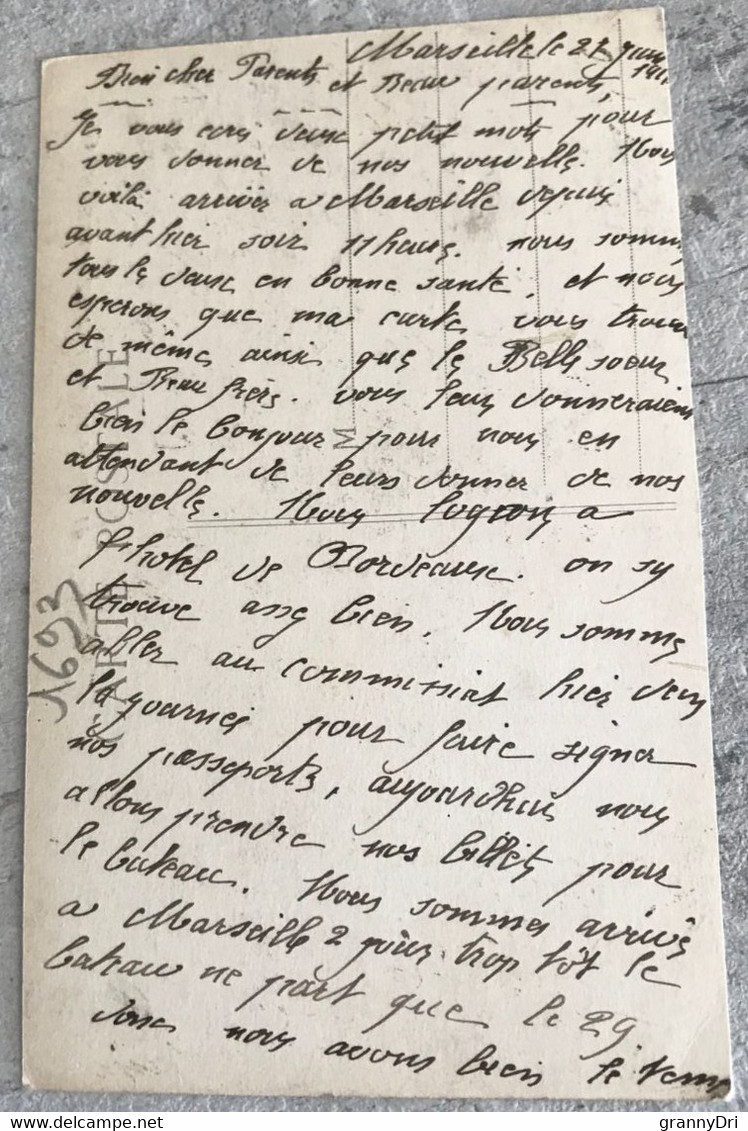 Marseille le 27 juin
191
Bien cher Parents et Beau parents,
Je vous ecris deux petit mots pour
vous donner de nos nouvelle. Nous
voilà arrivér a Marseille depuis
avant hier soir 11 heure. nous somm
tous les deux en bonne santé, et nous
esperons que ma carte vous trouv
de même ainsi que le Belle soeur
et Beau frère. vous leur donneraiens
bien le bonjour pour nous en
attendant de leurs donner de nos
nouvelle. Nous logeons a
l'hotel de Bordeaux. on sy
trouve assez bien. Nous somme
aller au commisiat hier dans
la journeé pour faire signer
nos passeports, aujourdhui nous
allons prendre nos billets pour
le bateau. Nous sommes arrivés
a Marseille 2 jours trop tôt le
bateau ne part que le 29.
donc nous avons bien le temp
1693
CARTE POSTALE
M
www.delcampe.net
grannyDri